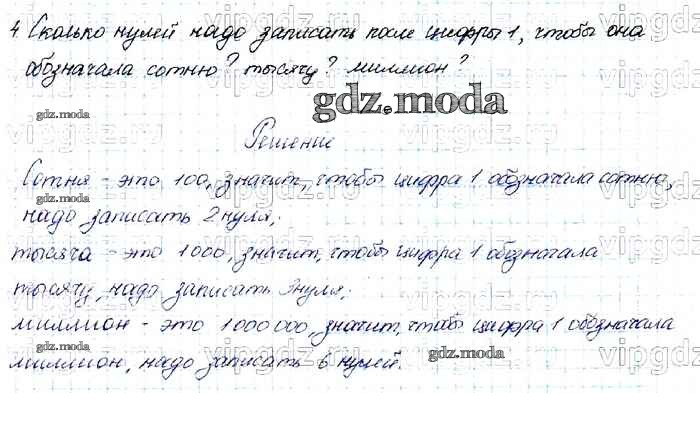 4. Сколько нулей надо записать после цифры 1, чтобы она
обозначала сотню? тысячу? миллион?
gdz.moda
Решение
Сотня - это 100, значит, чтобы цифра 1 обозначала сотню,
надо записать 2 нуля;
тысяча - это 1000, значит, чтобы цифра 1 обозначала
тысячу, надо записать 3 нуля;
миллион - это 1000 000, значит, чтобы цифра 1 обозначала
миллион, надо записать 6 нулей.
gdz.moda
gdz.moda
gdz.moda
gdz.moda
vipgdz.ru